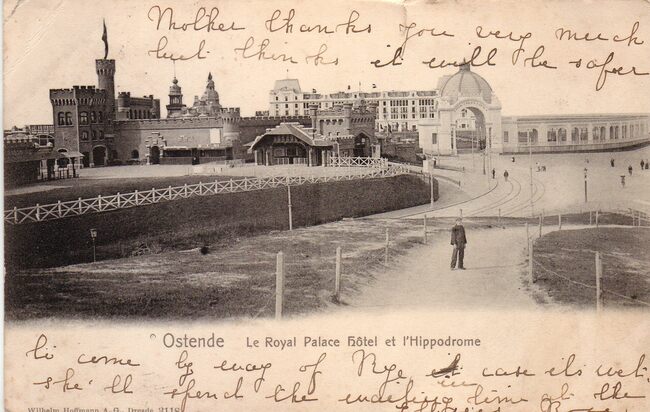 Mother thanks you very much
but thinks it will be safer
Ostende Le Royal Palace Hôtel et l'Hippodrome
to come by way of Rye in case its wet.
she'll spend the waiting time at the
Wilhelm Hoffmann A. G., Dresde 2118